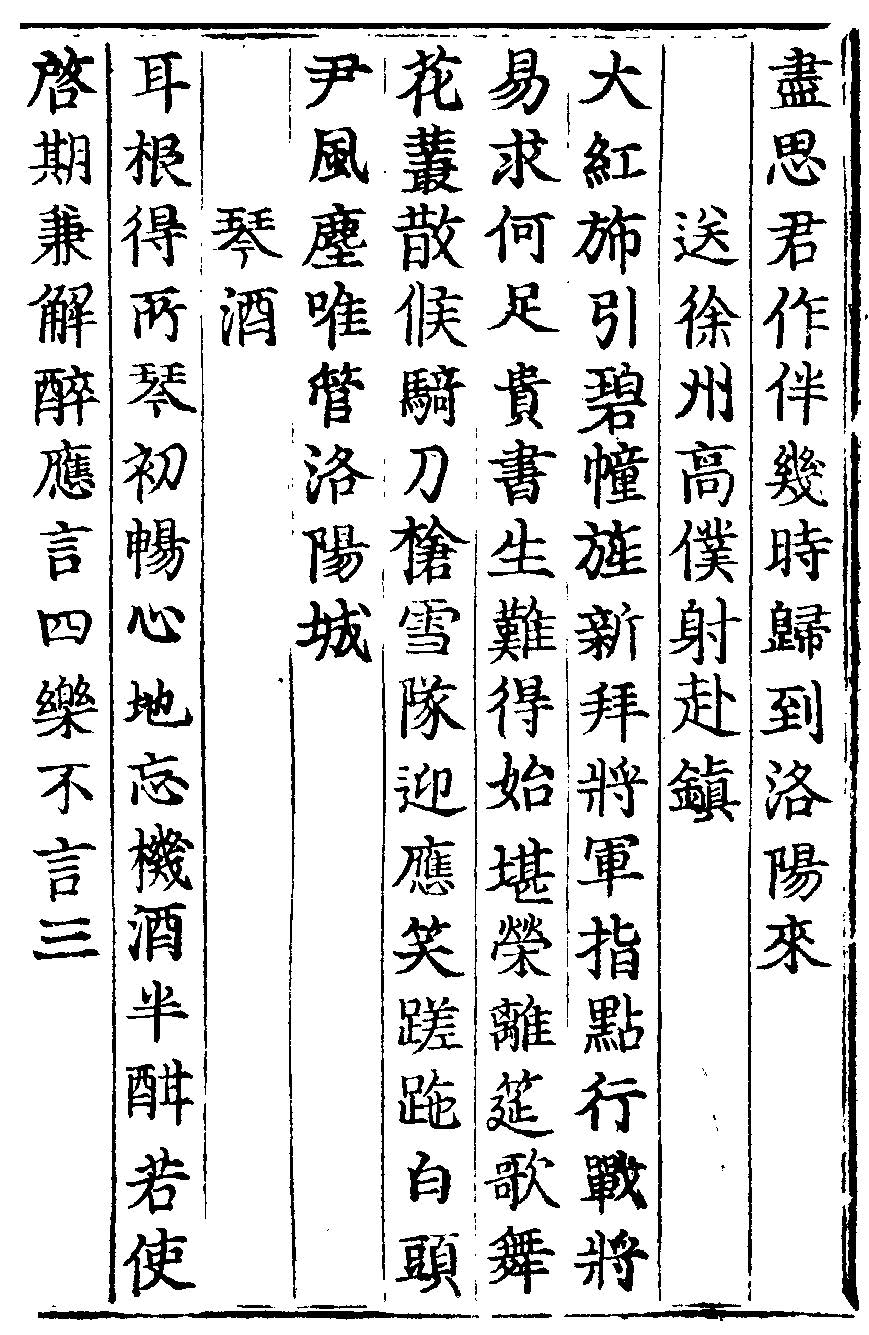 盡思君作伴幾時歸到洛陽來
送徐州高僕射赴鎮
大紅斾引碧幢旌新拜將軍指點行戰將
易求何足貴書生難得始堪榮離筵歌舞
花叢散候騎刀槍雪隊迎應笑蹉跎白頭
尹風塵唯管洛陽城
琴酒
耳根得所琴初暢心地忘機酒半酣若使
啓期兼解醉應言四樂不言三